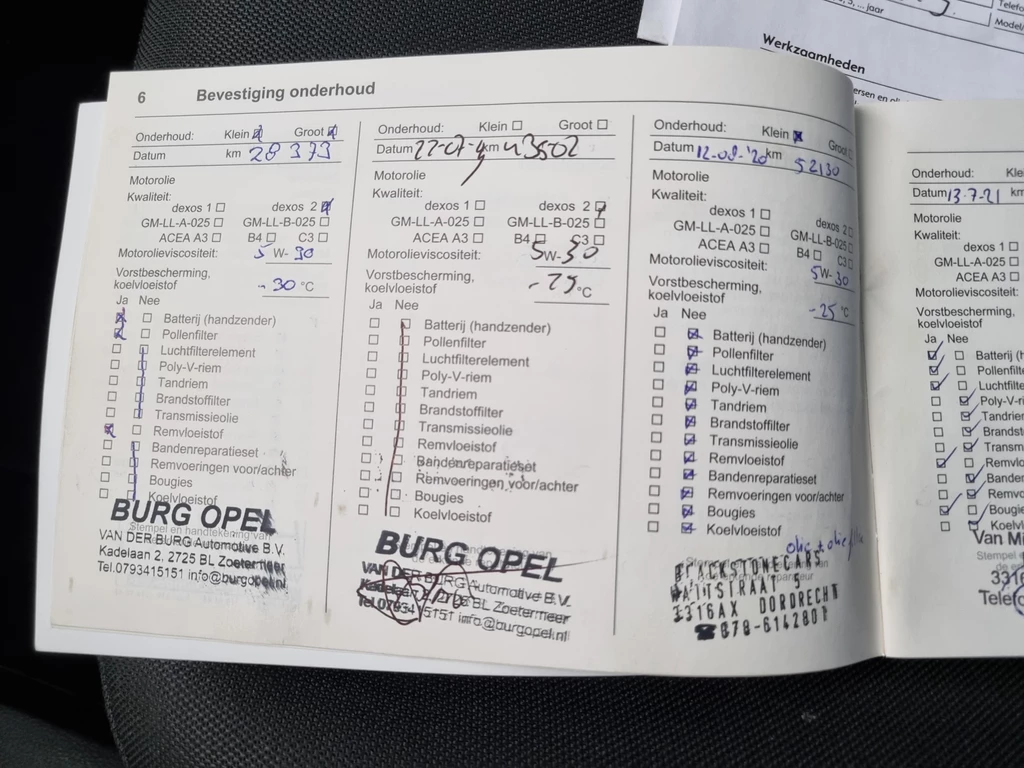 6 Bevestiging onderhoud
Onderhoud: Klein Groot
Datum km 28 373
Motorolie
Kwaliteit:
dexos 1 dexos 2
GM-LL-A-025 GM-LL-B-025
ACEA A3 B4 C3
Motorolieviscositeit: 5 W- 30
Vorstbescherming,
koelvloeistof - 30 °C
Ja Nee
Batterij (handzender)
Pollenfilter
Luchtfilterelement
Poly-V-riem
Tandriem
Brandstoffilter
Transmissieolie
Remvloeistof
Bandenreparatieset
Remvoeringen voor/achter
Bougies
Koelvloeistof
Stempel en handtekening van
BURG OPEL
VAN DER BURG Automotive B.V.
Kadelaan 2, 2725 BL Zoetermeer
Tel.0793415151 info@burgopel.nl
Onderhoud: Klein Groot
Datum 22-07- km 43502
Motorolie
Kwaliteit:
dexos 1 dexos 2
GM-LL-A-025 GM-LL-B-025
ACEA A3 B4 C3
Motorolieviscositeit: 5W-30
Vorstbescherming,
koelvloeistof -25 °C
Ja Nee
Batterij (handzender)
Pollenfilter
Luchtfilterelement
Poly-V-riem
Tandriem
Brandstoffilter
Transmissieolie
Remvloeistof
Bandenreparatieset
Remvoeringen voor/achter
Bougies
Koelvloeistof
BURG OPEL
VAN DER BURG Automotive B.V.
Kadelaan BL Zoetermeer
Tel.0793415151 info@burgopel.nl
Onderhoud: Klein Groot
Datum 12-08-'20 km 52130
Motorolie
Kwaliteit:
dexos 1 dexos 2
GM-LL-A-025 GM-LL-B-025
ACEA A3 B4 C3
Motorolieviscositeit: 5W-30
Vorstbescherming,
koelvloeistof -25 °C
Ja Nee
Batterij (handzender)
Pollenfilter
Luchtfilterelement
Poly-V-riem
Tandriem
Brandstoffilter
Transmissieolie
Remvloeistof
Bandenreparatieset
Remvoeringen voor/achter
Bougies
Koelvloeistof
olie + olie
BLACKSTONECARS
WATTSTRAAT 5
3316AX DORDRECHT
☎ 078-6142801
Onderhoud: Kle
Datum 13-7-21 km
Motorolie
Kwaliteit:
dexos 1
GM-LL-A-025
ACEA A3
Motorolieviscosite
Vorstbescherming,
koelvloeistof
Ja Nee
Batterij (h
Pollenfilte
Luchtfilte
Poly-V-ri
Tandrie
Brandst
Transm
Remvlo
Banden
Remvo
Bougie
Koelvl
Van Mi
Stempel e
331
Tele
3, ... jaar
Telefo
Model/
Werkzaamheden
ersen en oli